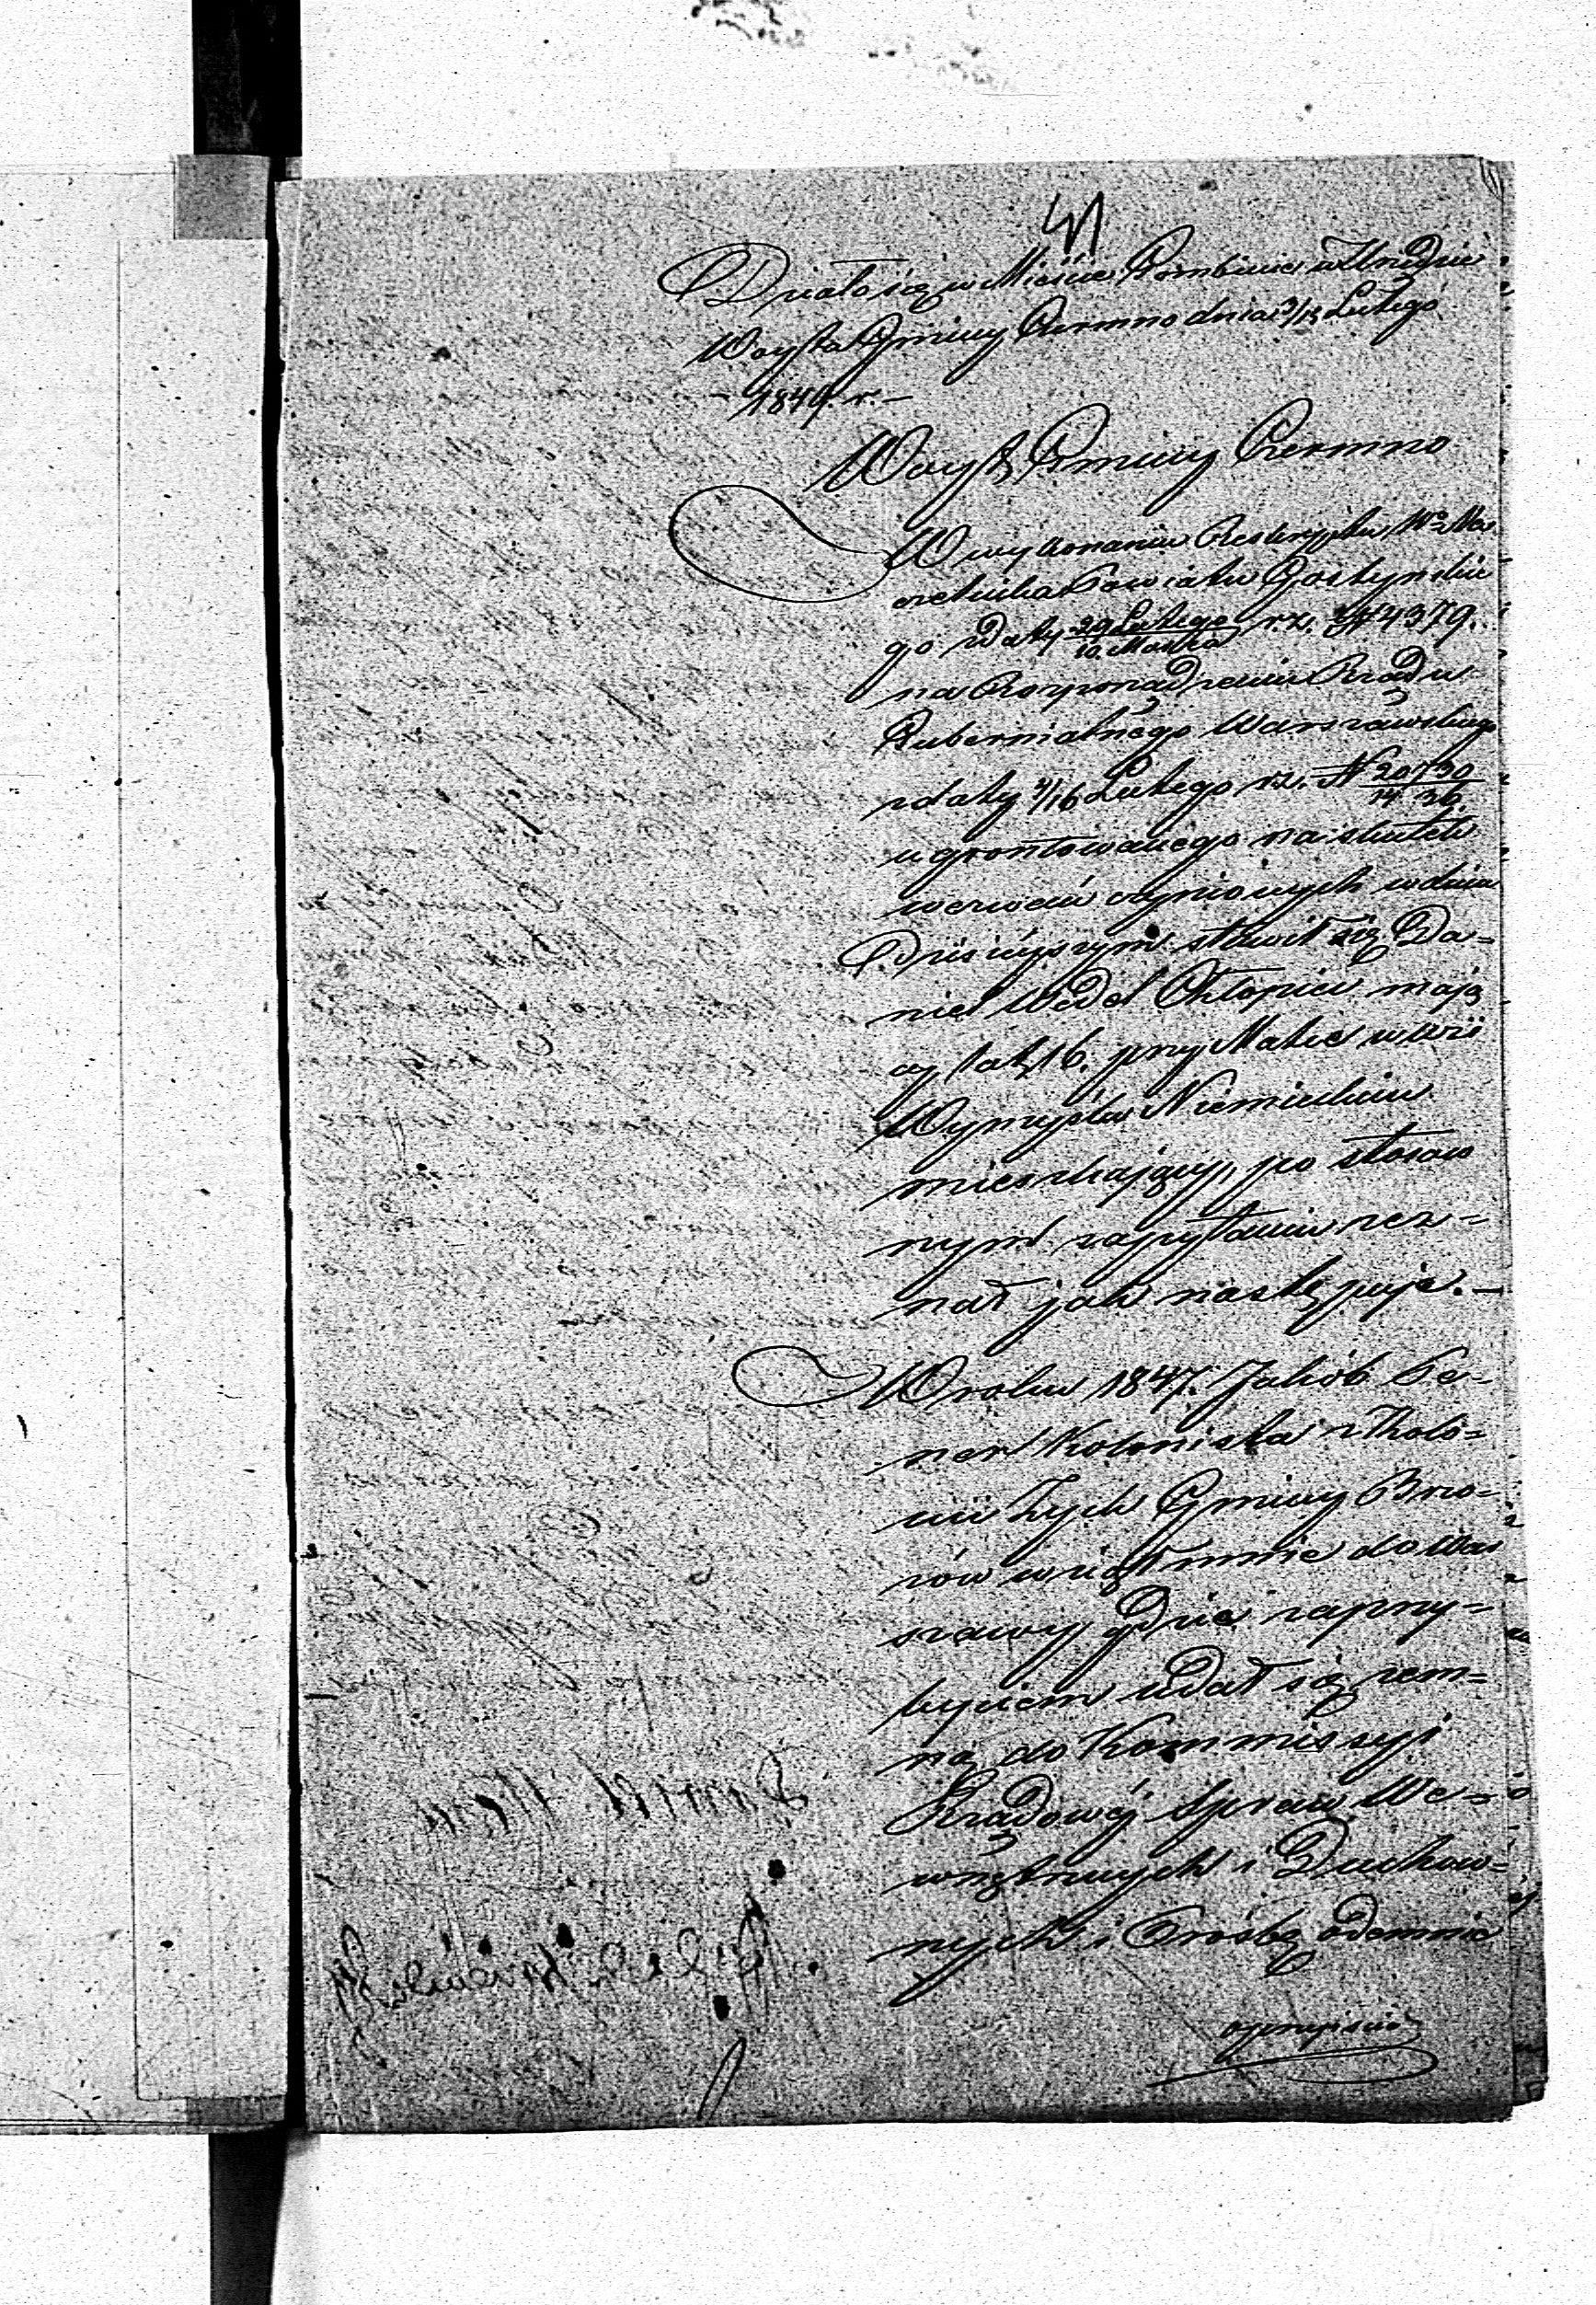 41
Działo się w Mieście Gombinie w Urzędzie
Woyta Gminy Czermno dnia 3/15 Lutego
– 1849. r. –
Woyt Gminy Czermno
W wykonaniu Reskryptu Wo Na
czelnika Powiatu Gostyńskie
go z daty 29 Lutego / 10. Marca r. z. N 4379.
na Rozporządzeniu Rządu
Gubernialnego Warszawskiego
z daty 4/16 Lutego r. z. N 20730 / 14 36
ugrontowanego na skutek
wezwań czyniowych w dniu
Dzisiejszym stawił się Da=
niel Wedel Chłopiec mają
cy lat 16. przy Matce we wsi
Wymyślu Niemieckim
mieszkający, po stosow
nym zapytaniu zez=
nał jak następuje. –
W roku 1847. Jakób Pe=
ner Kolonista z Kolo=
nii Zyck Gminy Brwo=
rów wziął mnie do War
szawy gdzie za przy=
byciem udał się zem=
ną do Kommissyi
Rządowéj Spraw We=
wnętrznych i Duchow=
nych i Prośbę odemnie